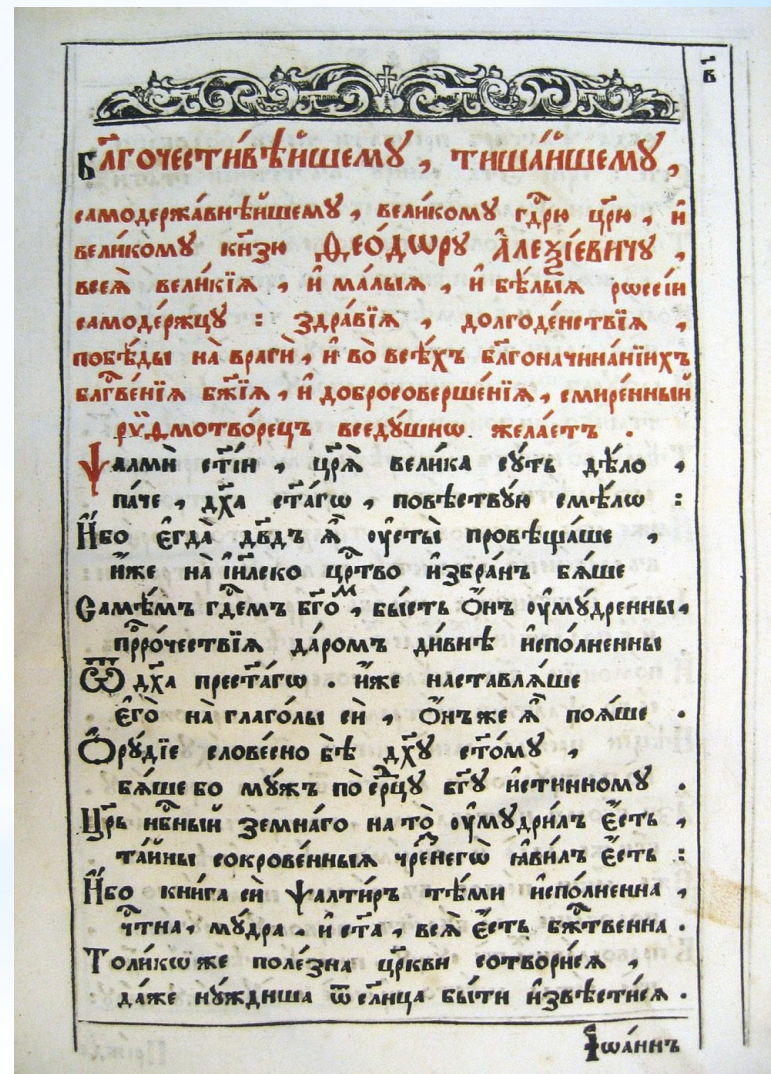 в҃
Бл҃гочести́вѣйшему, тиша́йшему,
самодержа́внѣйшему, вели́кому гд҃рю цр҃ю, и҆
вели́кому кн҃зю Ѳео́дѡру А҆леѯі́евичу,
всеѧ̀ вели́кїѧ, и҆ ма́лыѧ, и҆ бѣ́лыѧ рѡссі́и
самоде́ржцу : здра́вїѧ, долгоде́нствїѧ,
побѣ́ды на̀ врагѝ, и҆ во̀ всѣ́хъ бл҃гоначина́нїихъ
блгⷭ҇ве́нїѧ бж҃їѧ, и҆ добросоверше́нїѧ, смире́нный
риѳмотво́рецъ вседу́шнѡ жела́етъ .
Ѱалми̑ ст҃і́и, цр҃ѧ̀ вели́ка су́ть дѣ́ло,
па́че, дх҃а ст҃а́гѡ, повѣ́ствую смѣ́лѡ :
И҆́бо є҆гда̀ дв҃дъ ѧ҆̀ ᲂу҆сты̀ провѣща́ше,
и҆́же на̀ і҆и҃леко црⷭ҇тво и҆збра́нъ бѧ́ше
Самѣ́мъ гдⷭ҇емъ бг҃оⷨ, бы́сть ѻ҆́нъ ᲂу҆мудре́нны,
прⷪ҇ро́чествїѧ да́ромъ ди́внѣ и҆спо́лненны
Ѿ дх҃а прест҃а́гѡ . и҆́же наставлѧ́ше
є҆го̀ на̀ глаго́лы сѝ, ѻ҆́нъ же ѧ҆̀ поѧ́ше .
Ѻ҆рꙋ́дїе слове́сно бѣ̀ дх҃у ст҃о́му,
бѧ́ше бо му́жъ по се́рⷣцу бг҃у и҆́стинному .
Цр҃ь нбⷭ҇ный земна́го на то̀ ᲂу҆мудри́лъ є҆́сть,
та́йны сокрове́нныѧ чре́з негѡ̀ ꙗ҆ви́лъ є҆́сть :
И҆́бо кни́га сѝ ѱалти́рь тѣ́ми и҆спо́лненна,
чⷭ҇тна, му́дра, и҆ ст҃а, всѧ̀ є҆́сть бжⷭ҇твенна .
Толи́кѡ же поле́зна цр҃кви сотвори́сѧ,
да́же ну́ждниша ѿ со́лнца бы́ти и҆звѣсти́сѧ .
І҆ѡа́ннъ